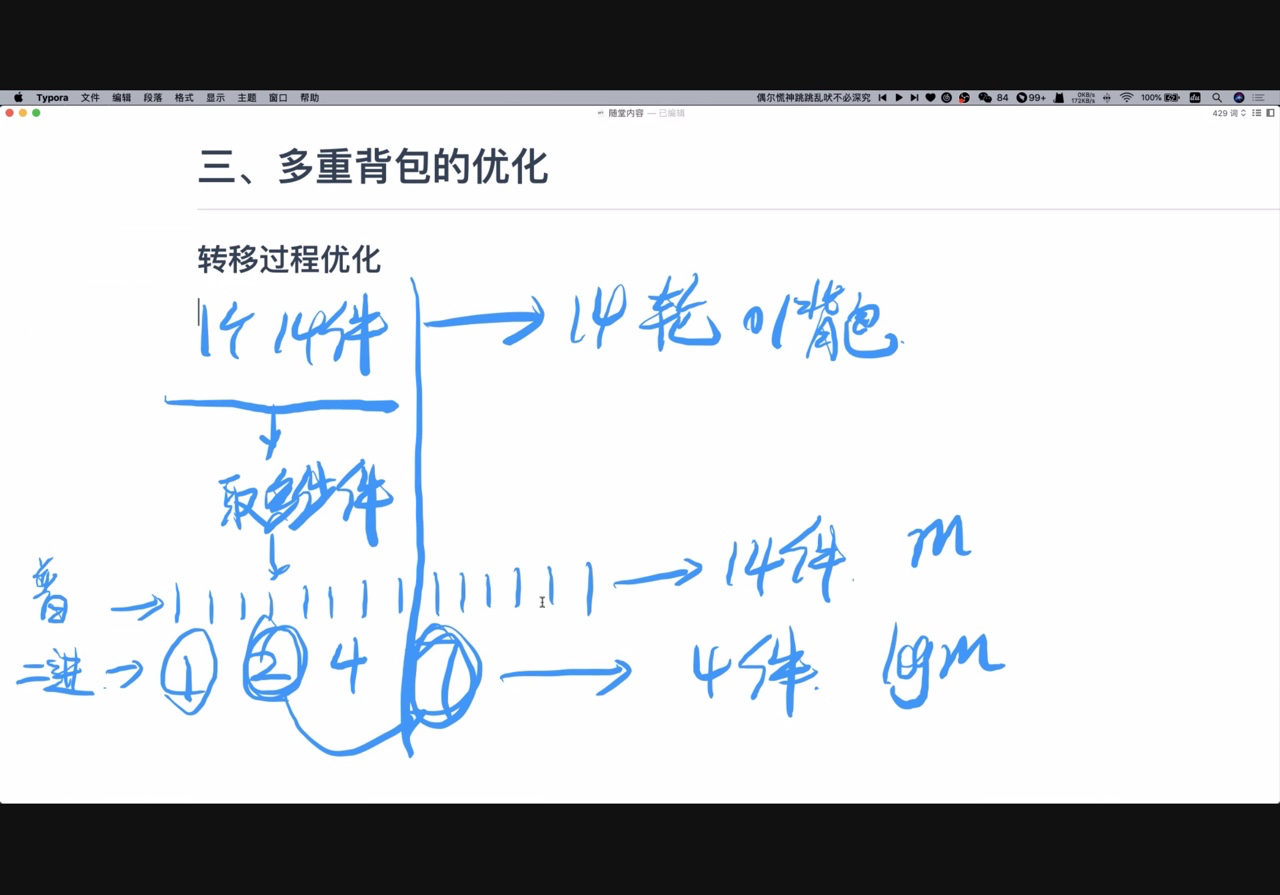 Typora 文件 编辑 段落 格式 显示 主题 窗口 帮助 偶尔慌神跳跳乱吠不必深究 84 99+ 0KB/s 172KB/s 100%
随堂内容 — 已编辑 429 词
三、多重背包的优化
转移过程优化
1个 14件 → 14轮 01背包
取多少件
普 → 1 1 1 1 1 1 1 1 1 1 1 1 1 1 → 14件 m
二进 → 1 2 4 7 → 4件 logm